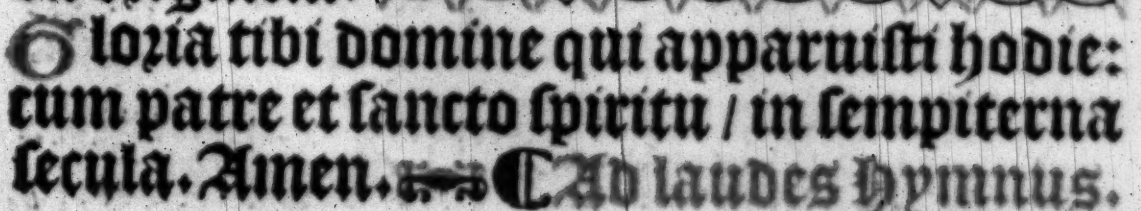 Gloria tibi domine qui apparuisti hodie:
cum patre et sancto spiritu / in sempiterna
secula. Amen. ¶ Ad laudes Hymnus.